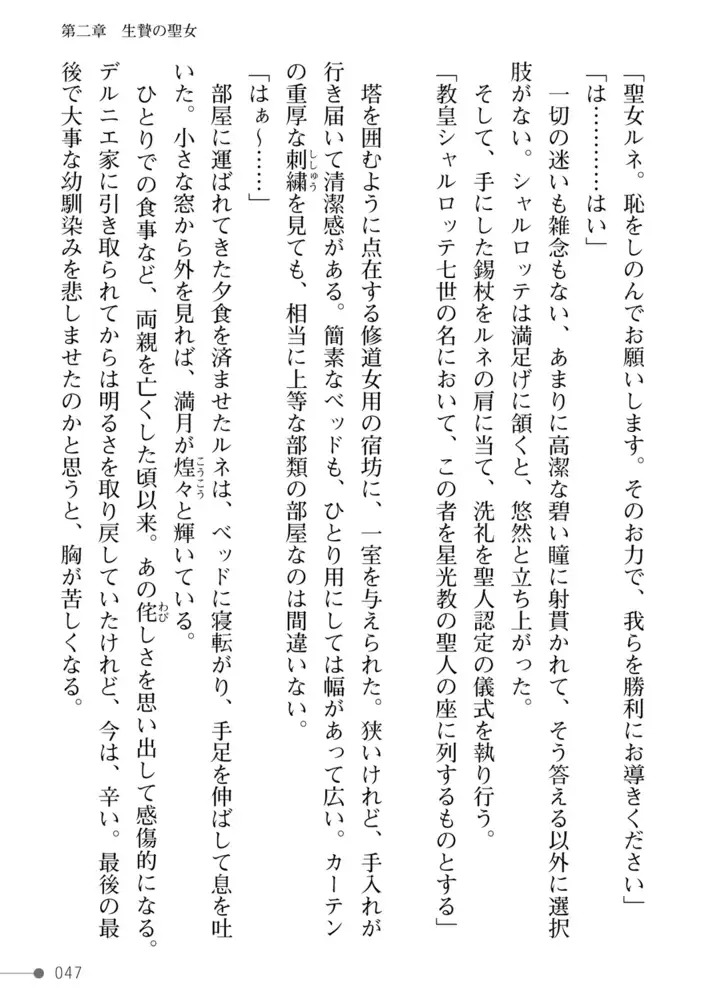 第二章　生贄の聖女
「聖女ルネ。恥をしのんでお願いします。そのお力で、我らを勝利にお導きください」
「は…………はい」
　一切の迷いも雑念もない、あまりに高潔な碧い瞳に射貫かれて、そう答える以外に選択
肢がない。シャルロッテは満足げに頷くと、悠然と立ち上がった。
　そして、手にした錫杖をルネの肩に当て、洗礼を聖人認定の儀式を執り行う。
「教皇シャルロッテ七世の名において、この者を星光教の聖人の座に列するものとする」
　塔を囲むように点在する修道女用の宿坊に、一室を与えられた。狭いけれど、手入れが
行き届いて清潔感がある。簡素なベッドも、ひとり用にしては幅があって広い。カーテン
の重厚な刺繍を見ても、相当に上等な部類の部屋なのは間違いない。
ししゅう
「はぁ～……」
　部屋に運ばれてきた夕食を済ませたルネは、ベッドに寝転がり、手足を伸ばして息を吐
いた。小さな窓から外を見れば、満月が煌々と輝いている。
こうこう
　ひとりでの食事など、両親を亡くした頃以来。あの侘しさを思い出して感傷的になる。
わび
デルニエ家に引き取られてからは明るさを取り戻していたけれど、今は、辛い。最後の最
後で大事な幼馴染みを悲しませたのかと思うと、胸が苦しくなる。
047